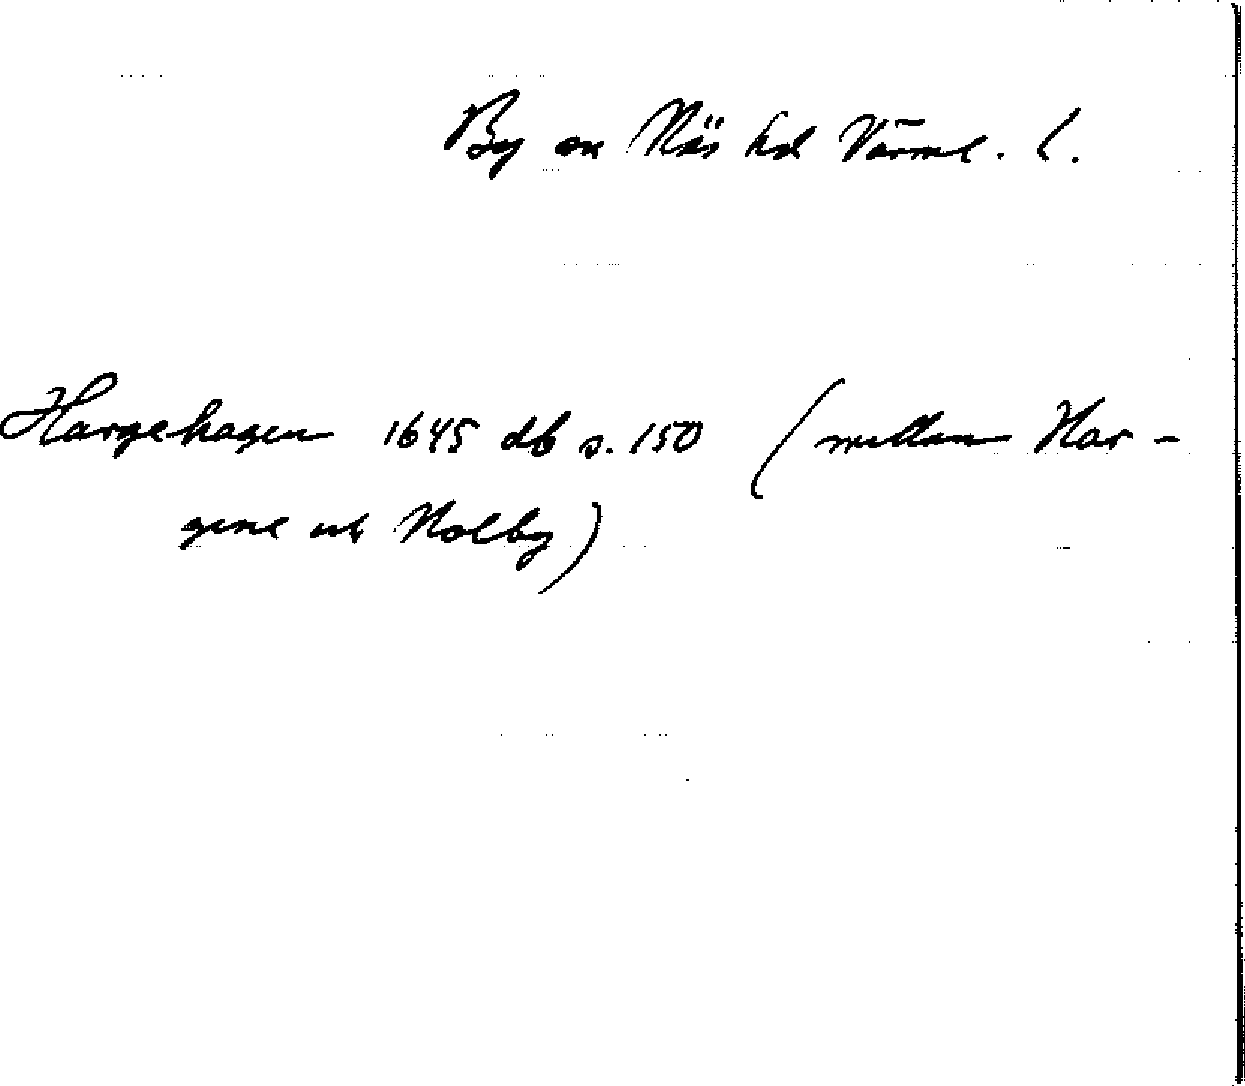 By sn Näs hd Värml. l.
Hargehagen 1645 db s. 150 (mellan Har-
gene och Nolby)